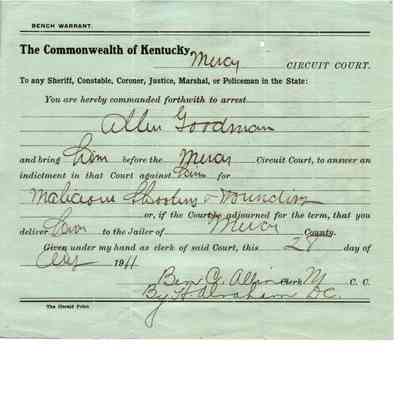 BENCH WARRANT.
The Commonwealth of Kentucky,
Mercer CIRCUIT COURT.
To any Sheriff, Constable, Coroner, Justice, Marshal, or Policeman in the State:
You are hereby commanded forthwith to arrest
Allen Goodman
and bring him before the Mercer Circuit Court, to answer an
indictment in that Court against him for
Malicious Shooting & Wounding
or, if the Court be adjourned for the term, that you
deliver him to the Jailer of Mercer County.
Given under my hand as clerk of said Court, this 28 day of
1911
Ben C. Allin Clerk M C. C.
By Abraham D.C.
The Herald Print